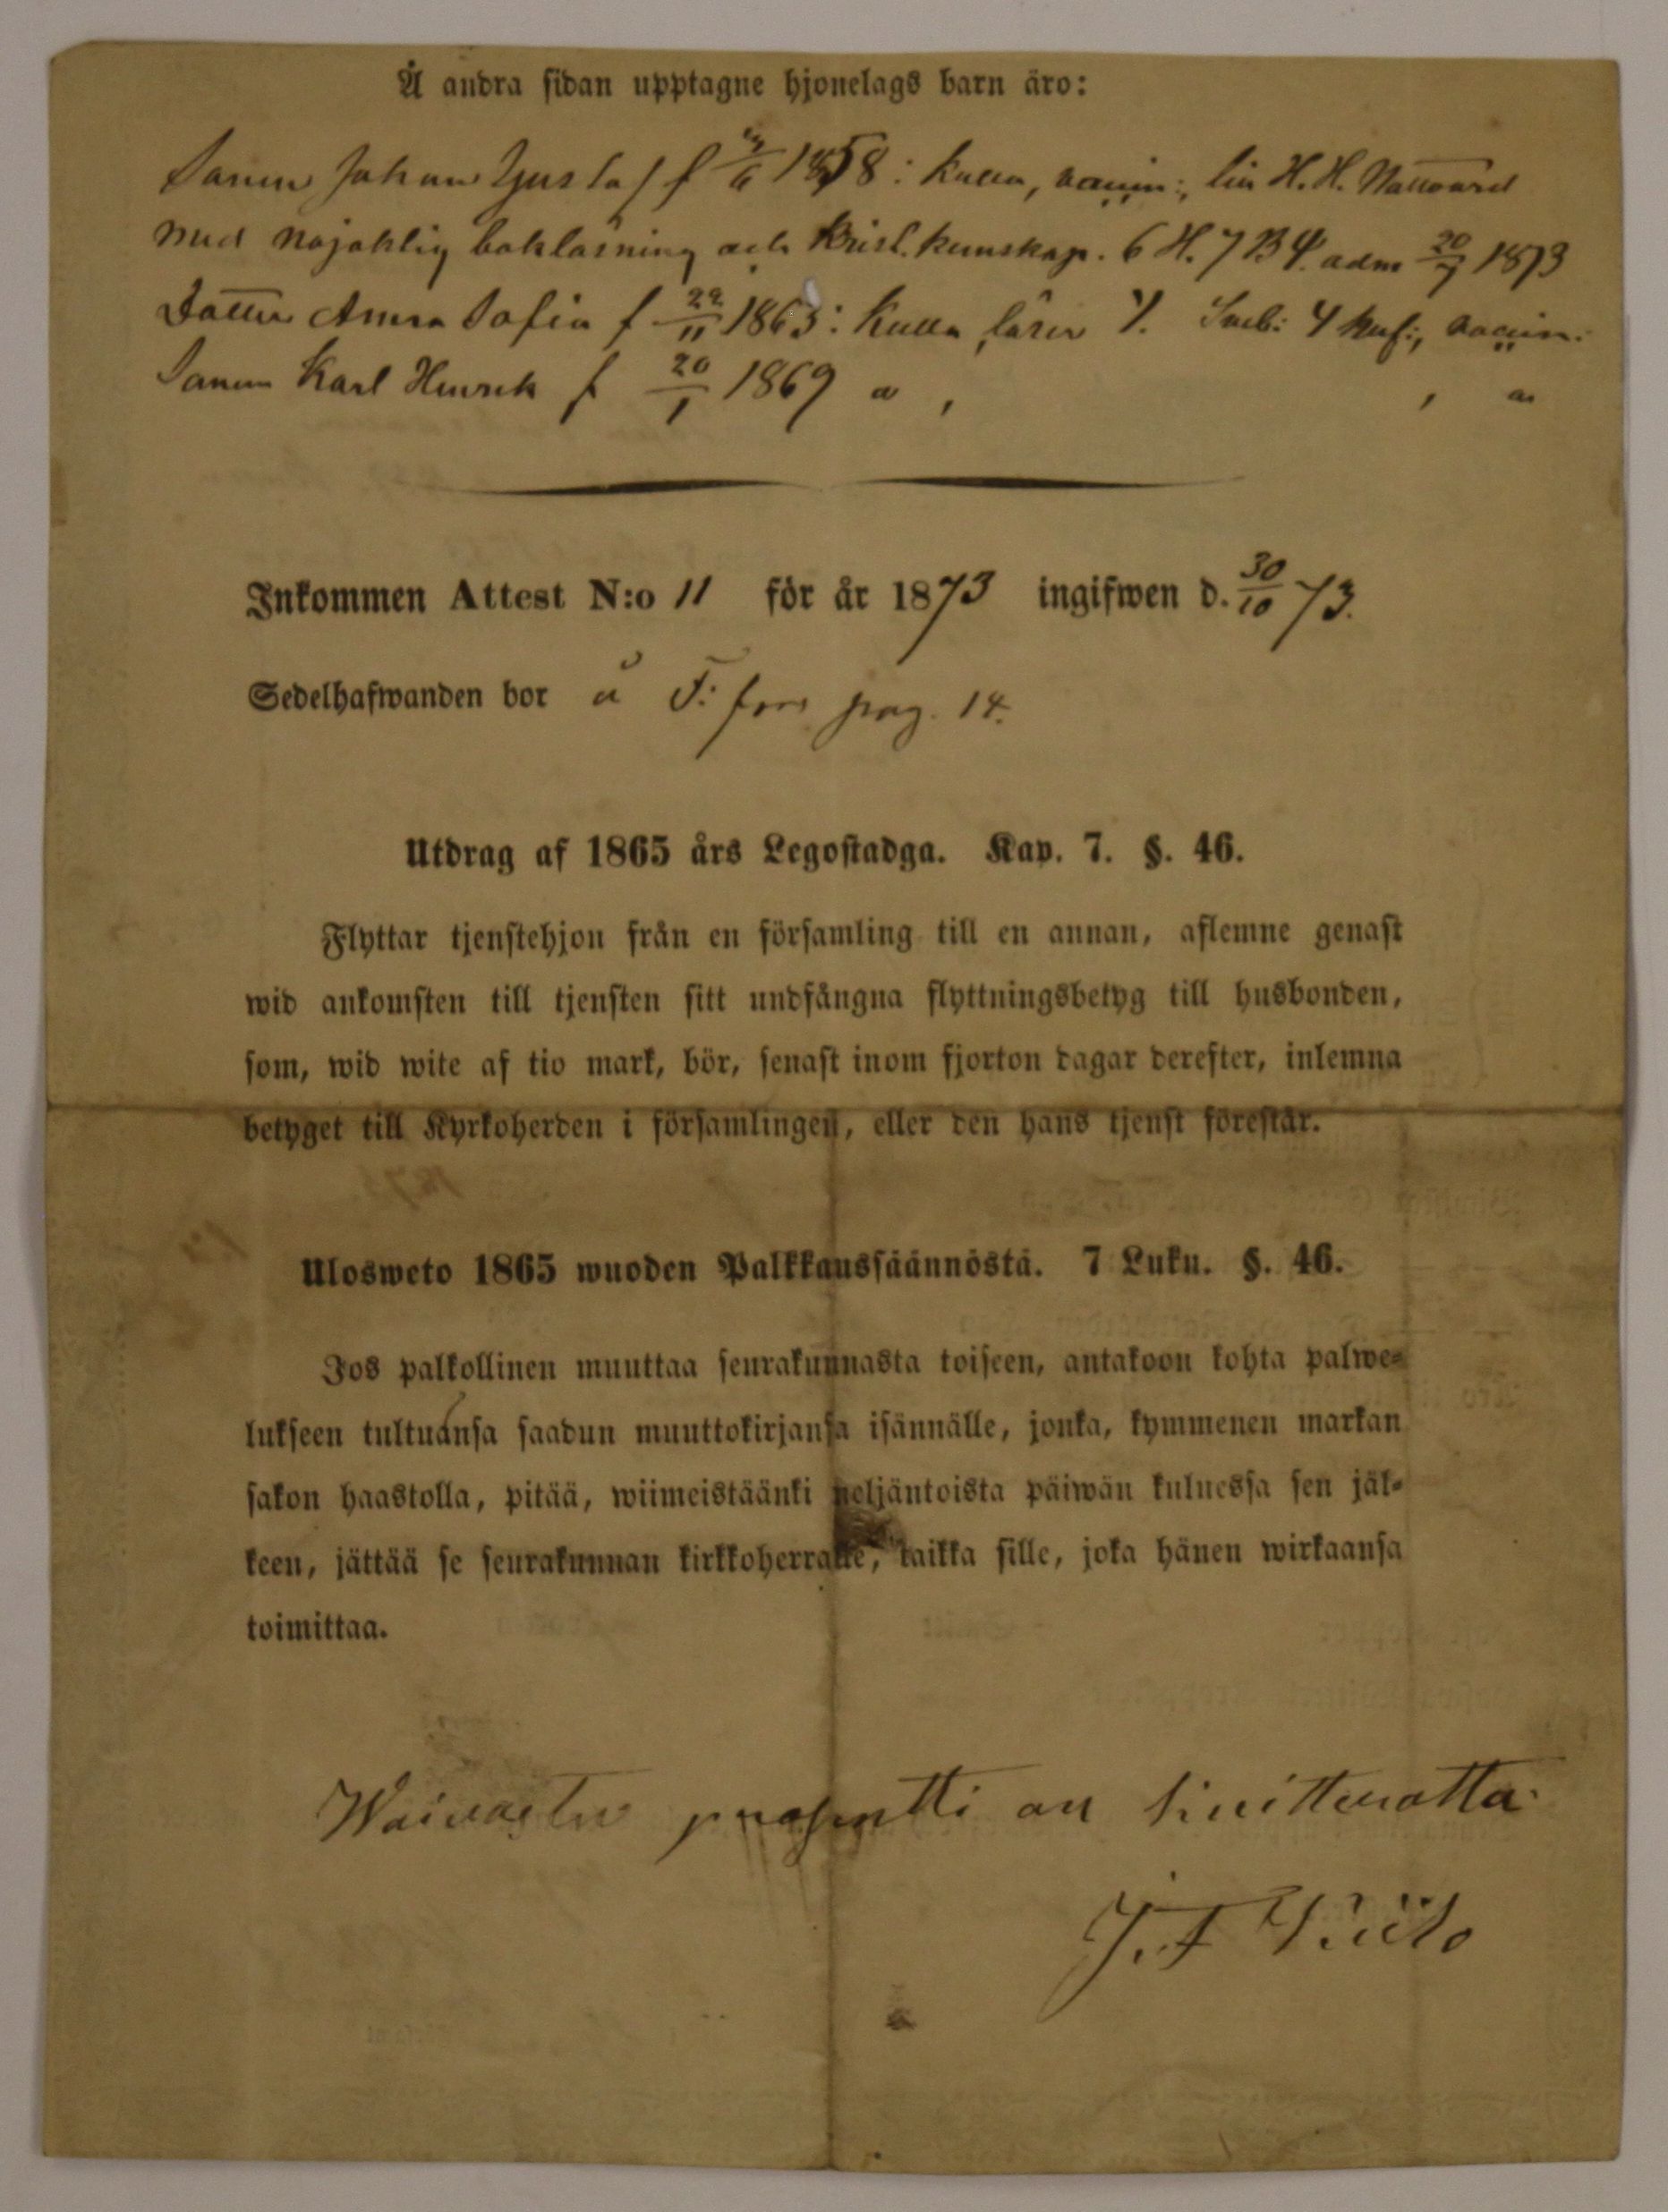 Å andra sidan upptagne hjonelags barn äro:
Sonen Johan Gustaf f 6 1858: Kulla, vaccin:, H. H. Nattvard
med nöjaktig bokläsning och Krist. kunskap. 6 H. 7 B 4. adm 20/7 1873
Dotter Anna Sofia f 22/11 1863: Kulla, läser 4
Sonen Karl Henrik f 20/1 1869
Inkommen Attest N:o 11 för år 1873 ingifwen d. 30/10 73.
Sedelhafwanden bor å F: fors pag. 14.
Utdrag af 1865 års Legostadga. Kap. 7. §. 46.
Flyttar tjenstehjon från en församling till en annan, aflemne genast
wid ankomsten till tjensten sitt undfångna flyttningsbetyg till husbonden,
som, wid wite af tio mark, bör, senast inom fjorton dagar derefter, inlemna
betyget till Kyrkoherden i församlingen, eller den hans tjenst förestår.
Ulosweto 1865 wuoden Palkkaussäännöstä. 7 Luku. §. 46.
Jos palkollinen muuttaa seurakunnasta toiseen, antakoon kohta palwe-
lukseen tultuansa saadun muuttokirjansa isännälle, jonka, kymmenen markan
sakon haastolla, pitää, wiimeistäänki neljäntoista päiwän kuluessa sen jäl-
keen, jättää se seurakunnan kirkkoherralle, taikka sille, joka hänen wirkaansa
toimittaa.
Waivastu prosentti on
J. F